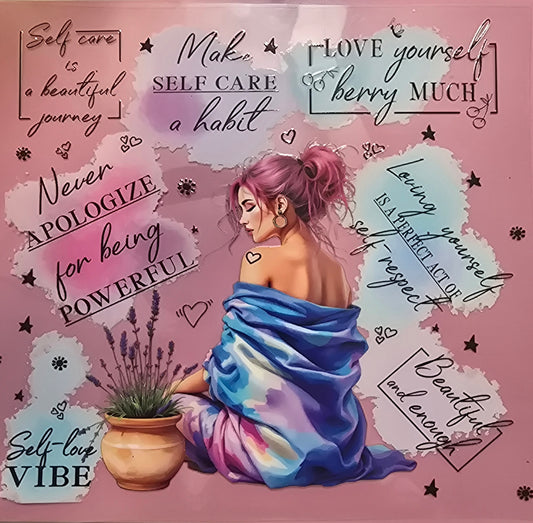 Self care
is
a beautiful
journey
Make
SELF CARE
a habit
LOVE yourself
berry MUCH
Never
APOLOGIZE
for being
POWERFUL
Loving yourself
IS A PERFECT ACT OF
self-respect
Beautiful
and enough
Self-love
VIBE